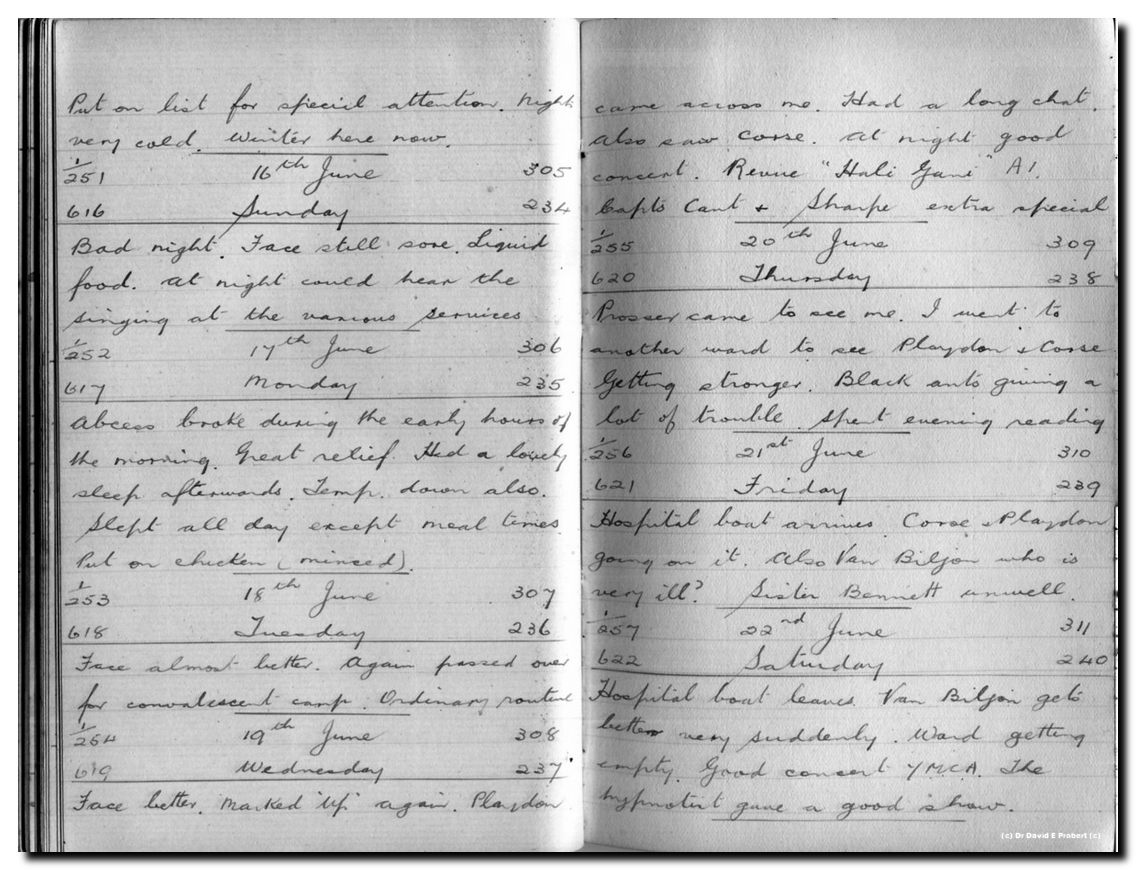 Put on list for special attention. Night
very cold. Winter here now.
1/251 16th June 305
616 Sunday 234
Bad night. Face still sore. Liquid
food. At night could hear the
singing at the various services
1/252 17th June 306
617 Monday 235
Abcess broke during the early hours of
the morning. Great relief. Had a lovely
sleep afterwards. Temp. down also.
Slept all day except meal times
Put on chicken (minced).
1/253 18th June 307
618 Tuesday 236
Face almost better. Again passed over
for convalescent camp. Ordinary routine
1/254 19th June 308
619 Wednesday 237
Face better. Marked "Up" again. Playdon
came across me. Had a long chat.
Also saw Corse. At night good
concert. Revue "Hali Gani" A1.
Capts Cant & Sharpe extra special
1/255 20th June 309
620 Thursday 238
Prosser came to see me. I went to
another ward to see Playdon & Corse
Getting stronger. Black ants giving a
lot of trouble. Spent evening reading
1/256 21st June 310
621 Friday 239
Hospital boat arrives. Corse & Playdon
going on it. Also Van Biljon who is
very ill? Sister Bennett unwell.
1/257 22nd June 311
622 Saturday 240
Hospital boat leaves. Van Biljon gets
better very suddenly. Ward getting
empty. Good concert YMCA. The
hypnotist gave a good show.
(c) Dr David E Probert (c)